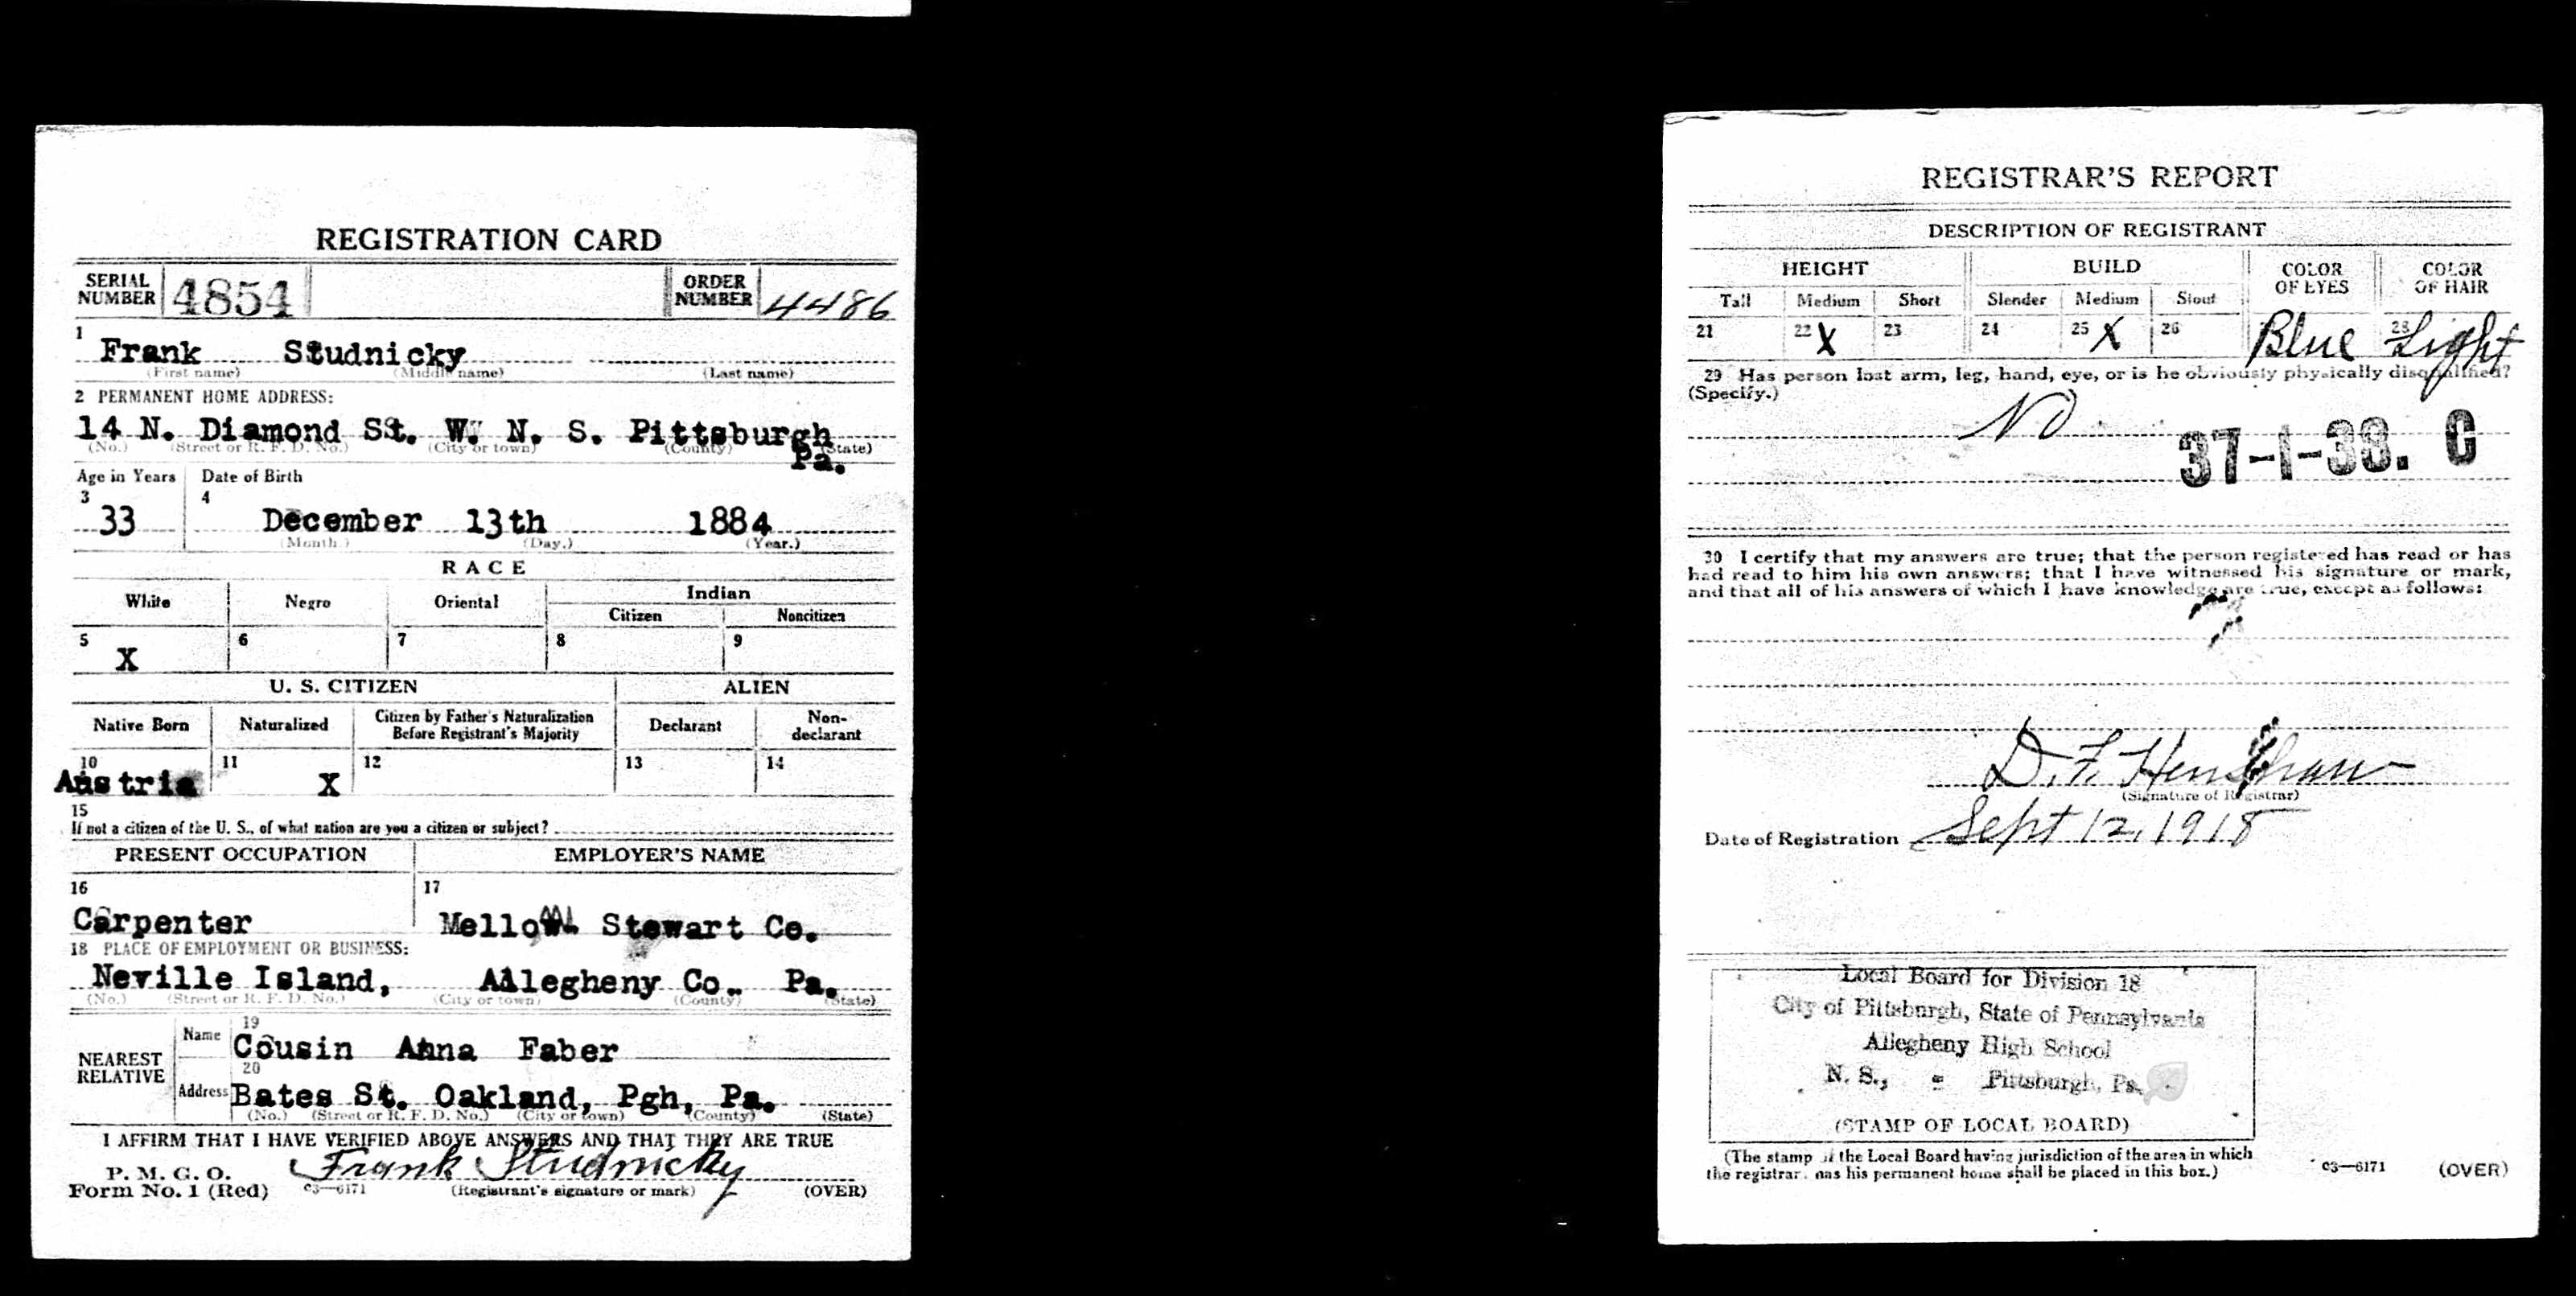 REGISTRATION CARD
SERIAL NUMBER 4854 ORDER NUMBER 4486
1 Frank Studnicky
(First name) (Middle name) (Last name)
2 PERMANENT HOME ADDRESS:
14 N. Diamond St. W. N. S. Pittsburgh
Pa.
(No.) (Street or R. F. D. No.) (City or town) (County) (State)
Age in Years Date of Birth
3 4
33 December 13th 1884
(Month.) (Day.) (Year.)
RACE
White Negro Oriental Indian
Citizen Noncitizen
5 6 7 8 9
X
U. S. CITIZEN ALIEN
Native Born Naturalized Citizen by Father's Naturalization Before Registrant's Majority Declarant Non-declarant
10 11 12 13 14
Austria X
15
If not a citizen of the U. S., of what nation are you a citizen or subject?
PRESENT OCCUPATION EMPLOYER'S NAME
16 17
Carpenter Mellon Stewart Co.
18 PLACE OF EMPLOYMENT OR BUSINESS:
Neville Island, Allegheny Co. Pa.
(No.) (Street or R. F. D. No.) (City or town) (County) (State)
NEAREST RELATIVE
Name 19 Cousin Anna Faber
Address 20 Bates St. Oakland, Pgh, Pa.
(No.) (Street or R. F. D. No.) (City or town) (County) (State)
I AFFIRM THAT I HAVE VERIFIED ABOVE ANSWERS AND THAT THEY ARE TRUE
P. M. G. O.
Form No. 1 (Red) 03—6171 Frank Studnicky
(Registrant's signature or mark) (OVER)
REGISTRAR'S REPORT
DESCRIPTION OF REGISTRANT
HEIGHT BUILD COLOR OF EYES COLOR OF HAIR
Tall Medium Short Slender Medium Stout
21 22 X 23 24 25 X 26 Blue 28 Light
29 Has person lost arm, leg, hand, eye, or is he obviously physically disqualified?
(Specify.)
No
37-1-38. C
30 I certify that my answers are true; that the person registered has read or has
had read to him his own answers; that I have witnessed his signature or mark,
and that all of his answers of which I have knowledge are true, except as follows:
D. F. Henshaw
(Signature of Registrar)
Date of Registration Sept 12, 1918
Local Board for Division 18
City of Pittsburgh, State of Pennsylvania
Allegheny High School
N. S., - Pittsburgh, Pa.
(STAMP OF LOCAL BOARD)
(The stamp of the Local Board having jurisdiction of the area in which
the registrar has his permanent home shall be placed in this box.)
03—6171 (OVER)